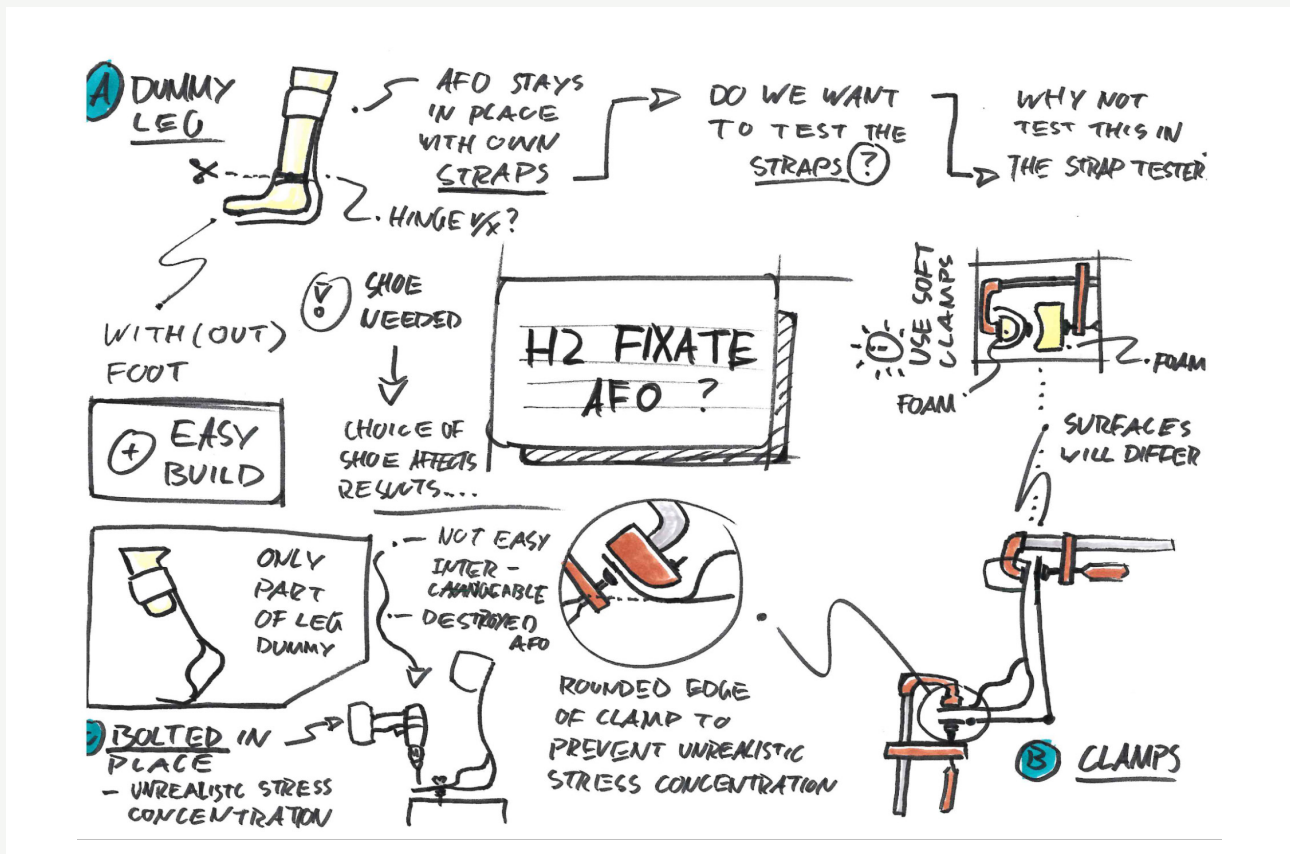 A DUMMY
LEG
AFO STAYS
IN PLACE
WITH OWN
STRAPS
DO WE WANT
TO TEST THE
STRAPS ?
WHY NOT
TEST THIS IN
THE STRAP TESTER.
HINGE V/X?
WITH(OUT)
FOOT
+ EASY
BUILD
! SHOE
NEEDED
CHOICE OF
SHOE AFFECTS
RESULTS....
H2 FIXATE
AFO ?
USE SOFT
CLAMPS
FOAM
FOAM
SURFACES
WILL DIFFER
ONLY
PART
OF LEG
DUMMY
- NOT EASY
INTER-
CHANGEABLE
- DESTROYED
AFO
C BOLTED IN
PLACE
- UNREALISTC STRESS
CONCENTRATION
ROUNDED EDGE
OF CLAMP TO
PREVENT UNREALISTIC
STRESS CONCENTRATION
B CLAMPS